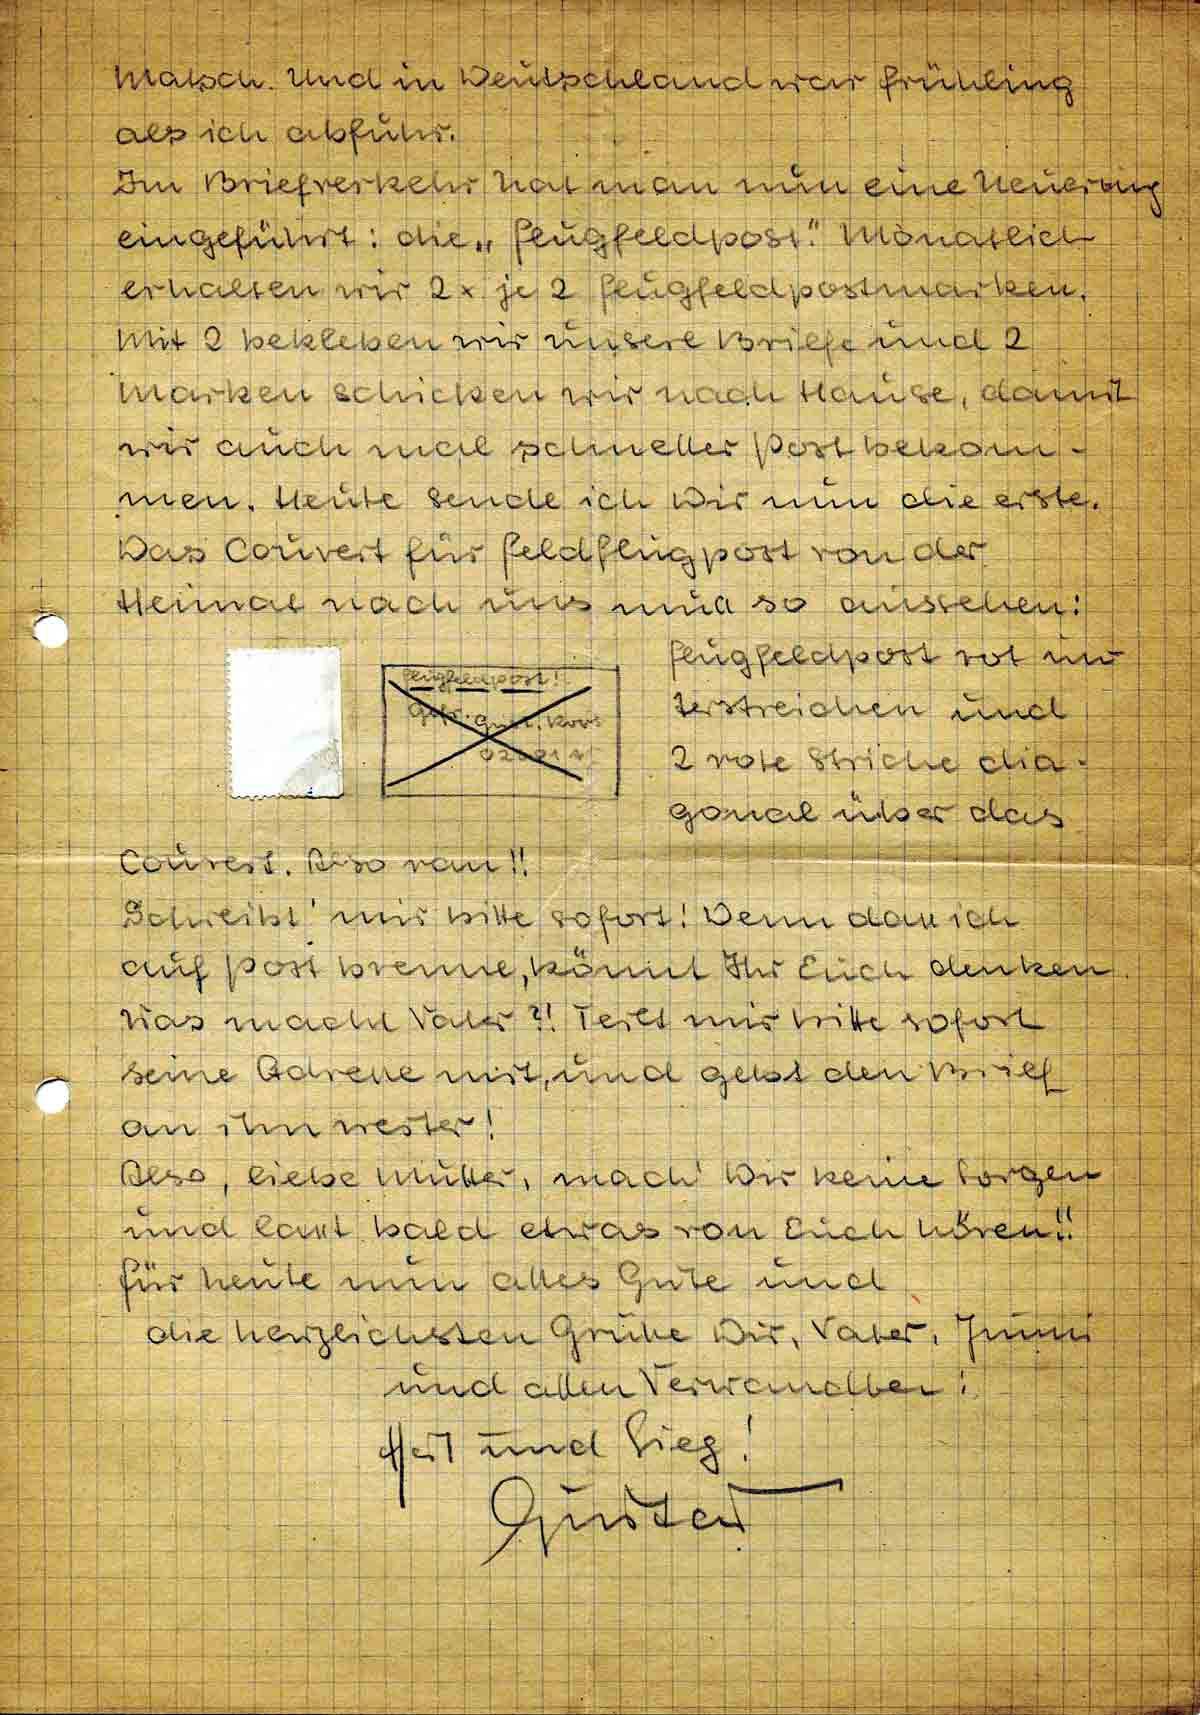 Matsch. Und in Deutschland war Frühling
als ich abfuhr.
Im Briefverkehr hat man nun eine Neuerung
eingeführt: die „Flugfeldpost". Monatlich
erhalten wir 2 x je 2 Flugfeldpostmarken.
Mit 2 bekleben wir unsere Briefe und 2
Marken schicken wir nach Hause, damit
wir auch mal schneller Post bekom-
men. Heute sende ich Dir nun die erste.
Das Couvert für Feldflugpost von der
Heimat nach uns muß so aussehen:
Flugfeldpost!
Gefr. Gust.
Flugfeldpost rot un
terstreichen und
2 rote Striche dia-
gonal über das
Couvert. Also ran!!
Schreibt' mir bitte sofort! Denn daß ich
auf Post brenne, könnt Ihr Euch denken.
Was macht Vater?! Teilt mir bitte sofort
seine Adresse mit, und gebt den Brief
an ihn weiter!
Also, liebe Mutter, mach' Dir keine Sorgen
und laßt bald etwas von Euch hören!!
Für heute nun alles Gute und
die herzlichsten Grüße Dir, Vater,
und allen Verwandten!
Heil und Sieg!
Gustav